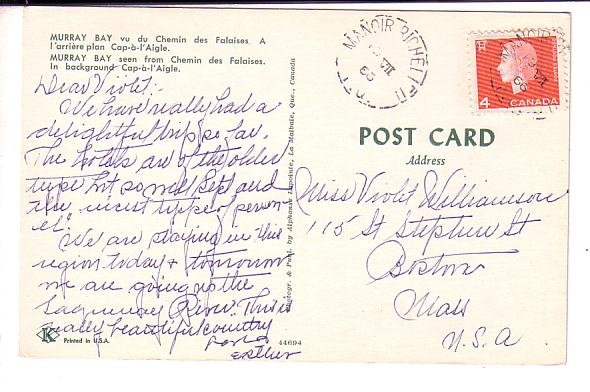 MURRAY BAY vu du Chemin des Falaises. A
l'arrière plan Cap-à-l'Aigle.
MURRAY BAY seen from Chemin des Falaises.
In background Cap-à-l'Aigle.
Dear Violet:-
We have really had a
delightful trip so far.
The hotels are of the older
type but so well kept and
the nicest type of person-
el.
We are staying in this
region today & tomorrow
we are going up the
Saguenay River. This is
really beautiful country
Esther
K
Printed in U.S.A.
44694
Photogr. & Publ. by Alphonse Lapointe, La Malbaie, Que., Canada
MANOIR RICHELIEU
VII
66
4
CANADA
MANOIR
VII
66
POST CARD
Address
Miss Violet Williamson
115 St Stephen St
Boston
Mass
U.S.A